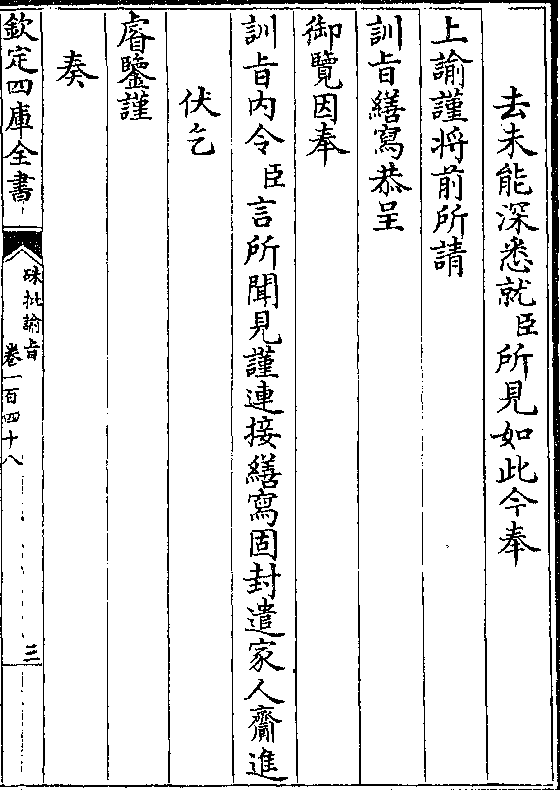 去未能深悉就臣所見如此今奉
上諭謹将前所請
訓旨繕寫恭呈
御覽因奉
訓旨内令臣言所聞見謹連接繕寫固封遣家人齎進
伏乞
睿鑒謹
奏
欽定四庫全書
硃批諭旨
卷一百四十八
三